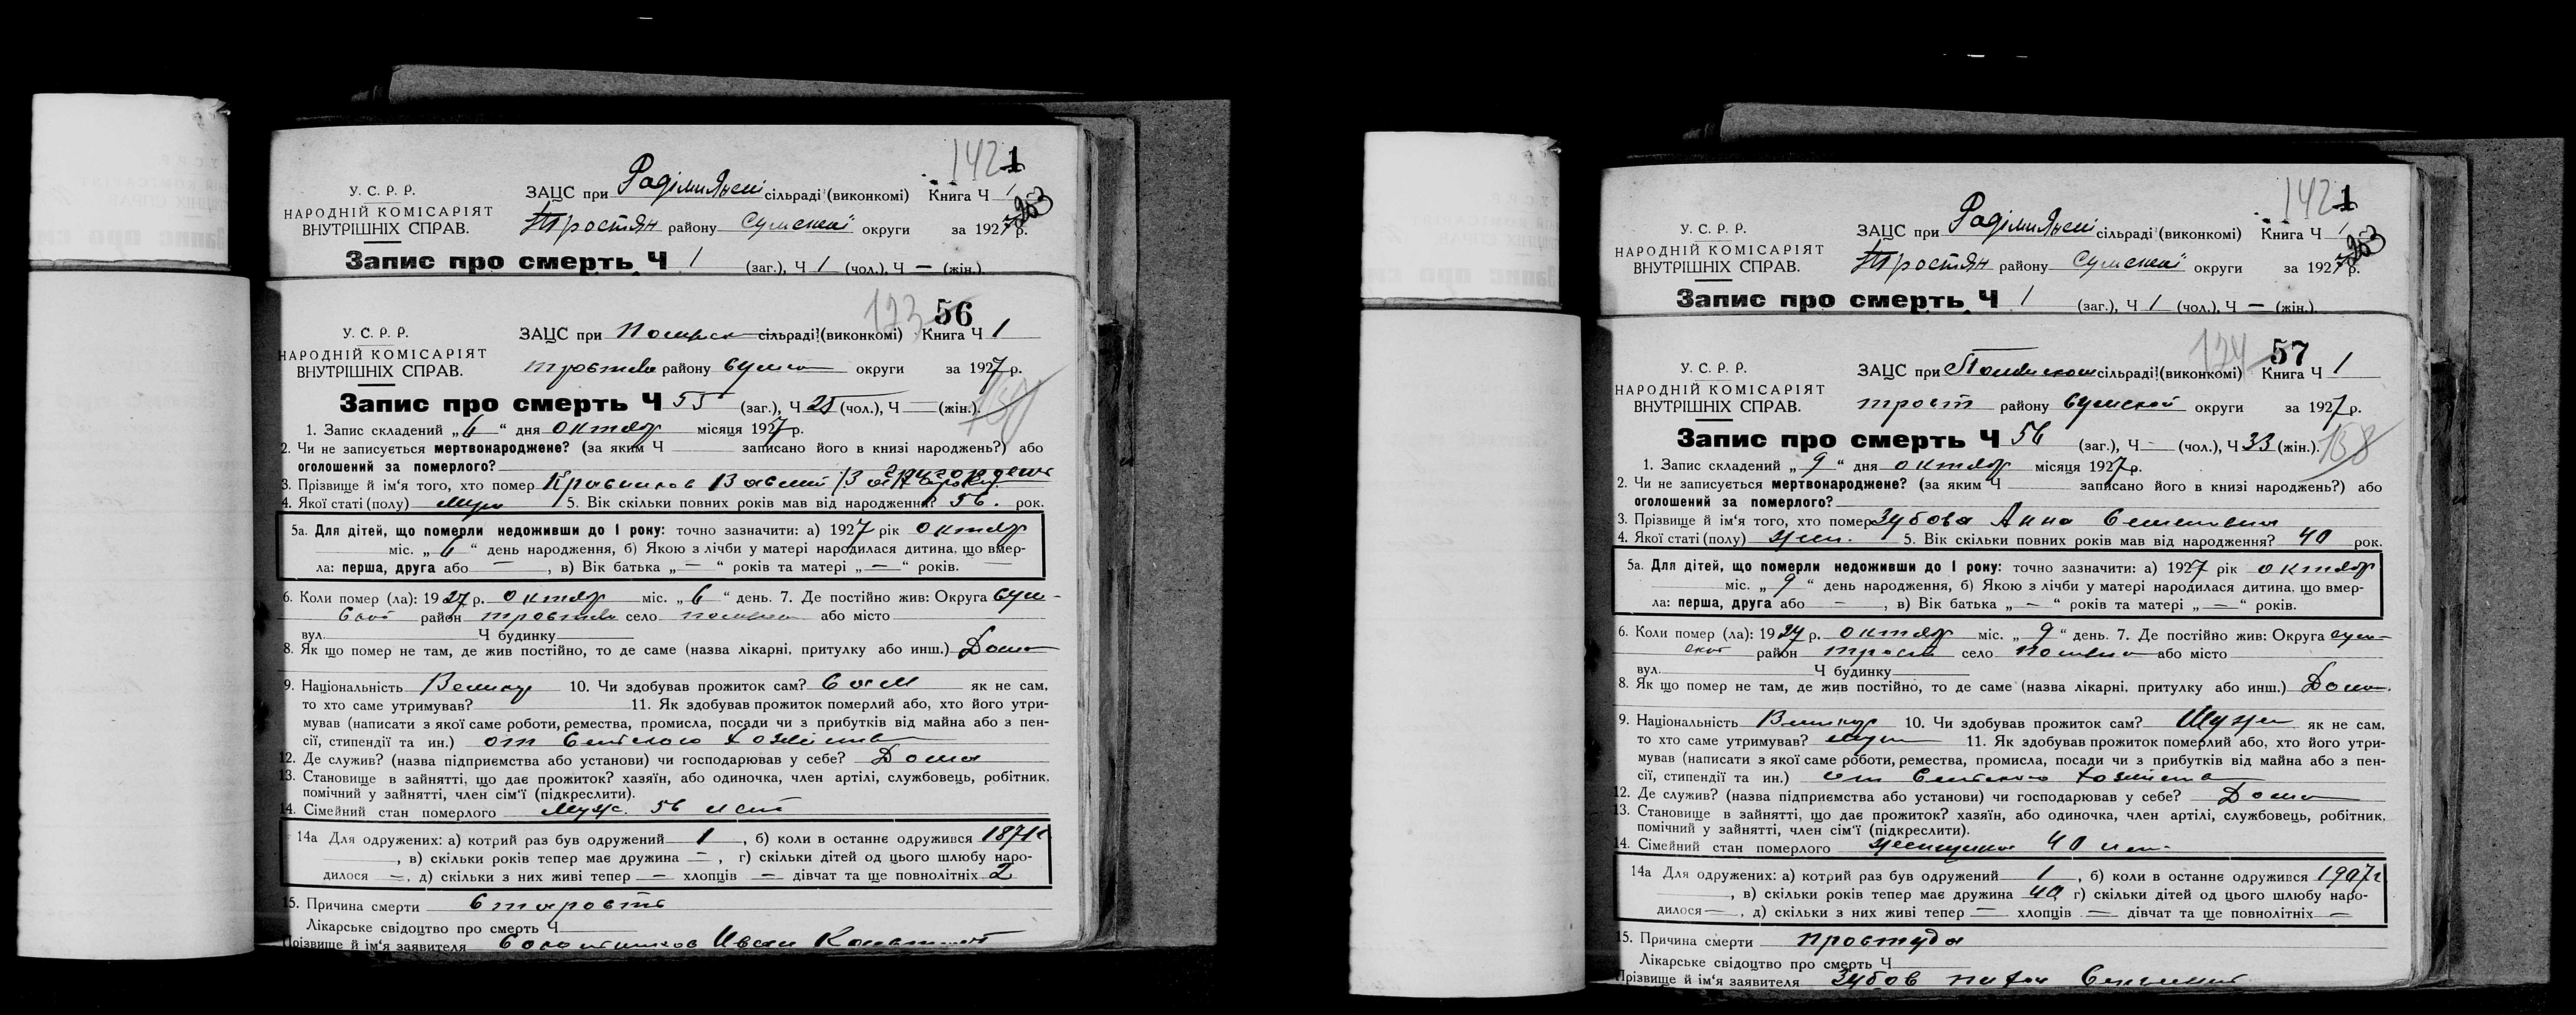 142 1
У. С. Р. Р.
НАРОДНІЙ КОМІСАРІЯТ
ВНУТРІШНІХ СПРАВ.
ЗАЦС при сільраді (виконкомі) Книга Ч 1
Тростян району Сумської округи за 1927 р.
Запис про смерть Ч 1 (заг.), Ч 1 (чол.), Ч — (жін.).
123 56
У. С. Р. Р.
НАРОДНІЙ КОМІСАРІЯТ
ВНУТРІШНІХ СПРАВ.
ЗАЦС при сільраді (виконкомі) Книга Ч 1
району округи за 1927 р.
Запис про смерть Ч 55 (заг.), Ч 25 (чол.), Ч — (жін.).
1. Запис складений „6“ дня октябр місяця 1927 р.
2. Чи не записується мертвонароджене? (за яким Ч записано його в книзі народжень?) або
оголошений за померлого?
3. Прізвище й ім'я того, хто помер
4. Якої статі (полу) муж 5. Вік скільки повних років мав від народження? 56. рок.
5а. Для дітей, що померли недоживши до 1 року: точно зазначити: а) 1927 рік октябр
міс. „6“ день народження, б) Якою з лічби у матері народилася дитина, що вмер-
ла: перша, друга або —, в) Вік батька „—“ років та матері „—“ років.
6. Коли помер (ла): 1927 р. октябр міс. „6“ день. 7. Де постійно жив: Округа Сум-
ской район село або місто
вул. Ч будинку
8. Як що помер не там, де жив постійно, то де саме (назва лікарні, притулку або инш.) Дома
9. Національність Великор 10. Чи здобував прожиток сам? Сам як не сам,
то хто саме утримував? 11. Як здобував прожиток померлий або, хто його утри-
мував (написати з якої саме роботи, ремества, промисла, посади чи з прибутків від майна або з пен-
сії, стипендії та ин.) от Сельского хозяйства
12. Де служив? (назва підприємства або установи) чи господарював у себе? Дома
13. Становище в зайнятті, що дає прожиток? хазяїн, або одиночка, член артілі, службовець, робітник,
помічний у зайнятті, член сім'ї (підкреслити).
14. Сімейний стан померлого Муж. 56 лет
14а Для одружених: а) котрий раз був одружений 1, б) коли в останнє одружився 1871 г
, в) скільки років тепер має дружина —, г) скільки дітей од цього шлюбу наро-
дилося —, д) скільки з них живі тепер — хлопців — дівчат та ще повнолітніх 2
15. Причина смерти старость
Лікарське свідоцтво про смерть Ч
Прізвище й ім'я заявителя Иван
142 1
У. С. Р. Р.
НАРОДНІЙ КОМІСАРІЯТ
ВНУТРІШНІХ СПРАВ.
ЗАЦС при сільраді (виконкомі) Книга Ч 1
Тростян району Сумської округи за 1927 р.
Запис про смерть Ч 1 (заг.), Ч 1 (чол.), Ч — (жін.).
124 57
У. С. Р. Р.
НАРОДНІЙ КОМІСАРІЯТ
ВНУТРІШНІХ СПРАВ.
ЗАЦС при сільраді (виконкомі) Книга Ч 1
трост району Сумской округи за 1927 р.
Запис про смерть Ч 56 (заг.), Ч — (чол.), Ч 33 (жін.). 158
1. Запис складений „9“ дня октябр місяця 1927 р.
2. Чи не записується мертвонароджене? (за яким Ч записано його в книзі народжень?) або
оголошений за померлого?
3. Прізвище й ім'я того, хто помер Зубова Анна Семеновна
4. Якої статі (полу) жен. 5. Вік скільки повних років мав від народження? 40 рок.
5а. Для дітей, що померли недоживши до 1 року: точно зазначити: а) 1927 рік октябр
міс. „9“ день народження, б) Якою з лічби у матері народилася дитина, що вмер-
ла: перша, друга або —, в) Вік батька „—“ років та матері „—“ років.
6. Коли помер (ла): 1927 р. октябр міс. „9“ день. 7. Де постійно жив: Округа Сум-
ской район трост село або місто
вул. Ч будинку
8. Як що помер не там, де жив постійно, то де саме (назва лікарні, притулку або инш.) Дома.
9. Національність Великор 10. Чи здобував прожиток сам? Муж як не сам,
то хто саме утримував? муж 11. Як здобував прожиток померлий або, хто його утри-
мував (написати з якої саме роботи, ремества, промисла, посади чи з прибутків від майна або з пен-
сії, стипендії та ин.) от Сельского хозяйства
12. Де служив? (назва підприємства або установи) чи господарював у себе? Дома
13. Становище в зайнятті, що дає прожиток? хазяїн, або одиночка, член артілі, службовець, робітник,
помічний у зайнятті, член сім'ї (підкреслити).
14. Сімейний стан померлого женщина 40 лет
14а Для одружених: а) котрий раз був одружений 1, б) коли в останнє одружився 1907 г
, в) скільки років тепер має дружина 40 г) скільки дітей од цього шлюбу наро-
дилося —, д) скільки з них живі тепер — хлопців — дівчат та ще повнолітніх —
15. Причина смерти простуда
Лікарське свідоцтво про смерть Ч
Прізвище й ім'я заявителя Зубов